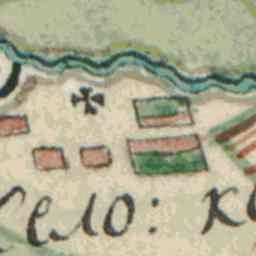 село: ко